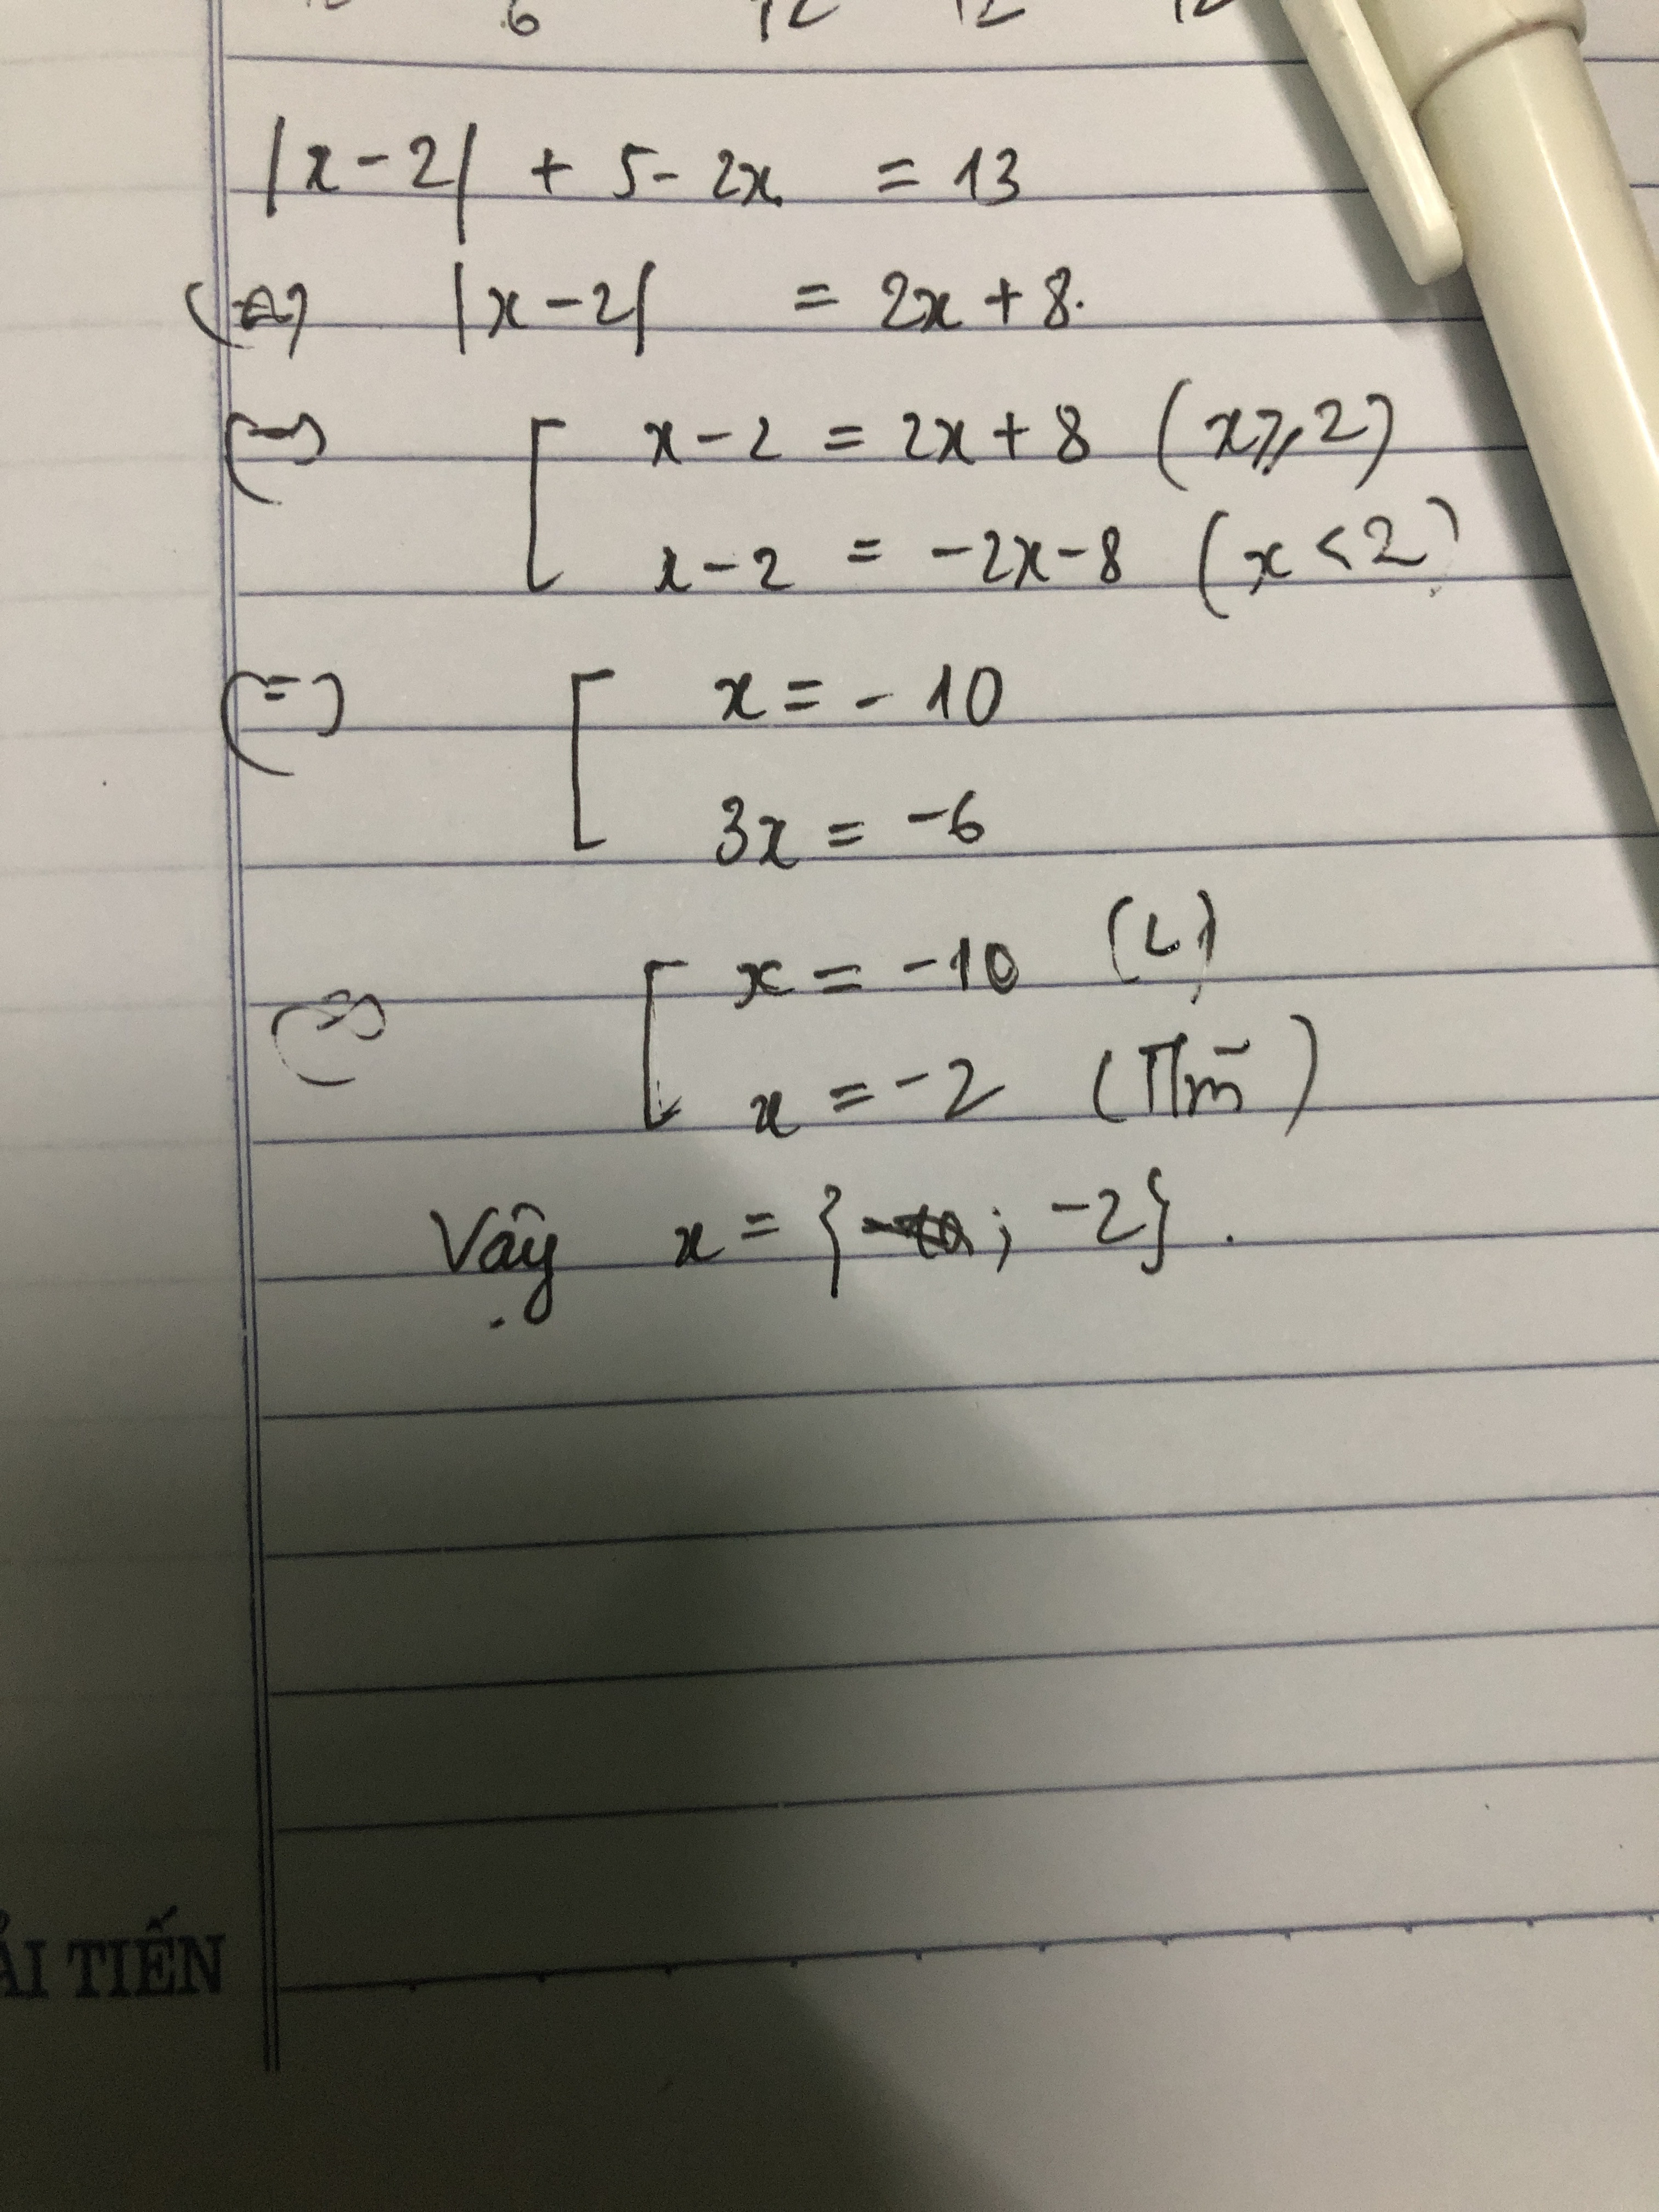 6 12 12 12
|x-2| + 5-2x = 13
(=) |x-2| = 2x+8.
(=) [ x-2 = 2x+8 (x⩾2)
x-2 = -2x-8 (x<2)
(=) [ x = -10
3x = -6
(=) [ x = -10 (L)
x = -2 (TM)
Vậy x = { ; -2}.
ẢI TIẾN